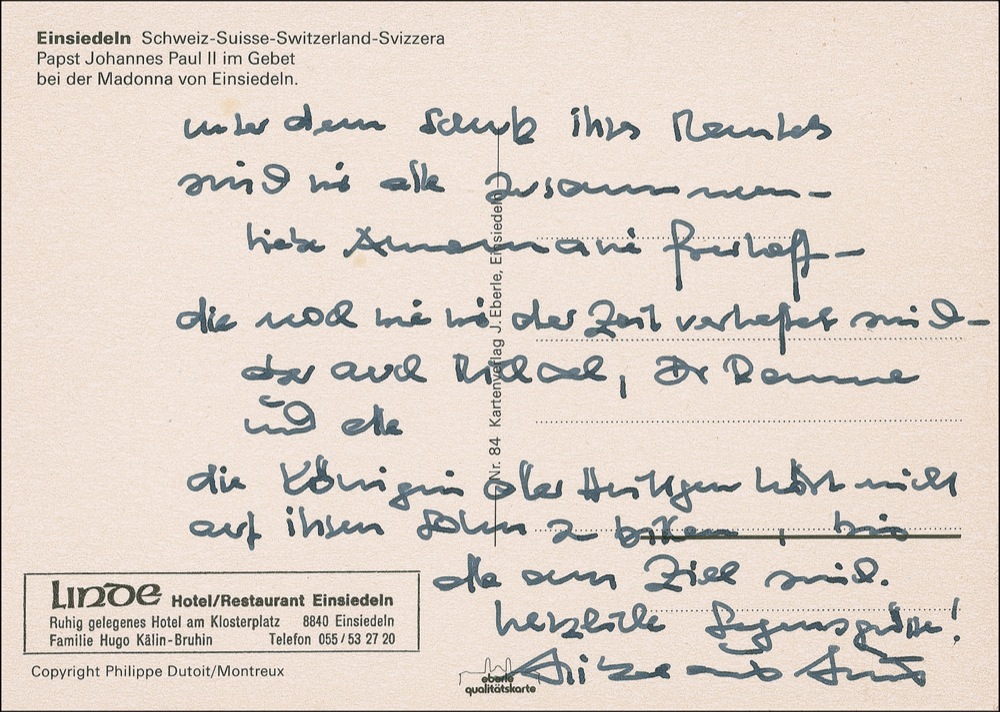 Einsiedeln Schweiz-Suisse-Switzerland-Svizzera
Papst Johannes Paul II im Gebet
bei der Madonna von Einsiedeln.
unter dem Schutz ihres Mantels
sind wir alle zusammen –
liebe Annemarie
die noch wie wir der Zeit verhaftet sind –
aber auch
und alle
die Königin aller Heiligen hört nicht
auf ihren Sohn z bitten, bis
alle am Ziel sind.
herzliche Segensgrüsse!
Nr. 84 Kartenverlag J. Eberle, Einsiedeln
Linde Hotel/Restaurant Einsiedeln
Ruhig gelegenes Hotel am Klosterplatz 8840 Einsiedeln
Familie Hugo Kälin-Bruhin Telefon 055/53 27 20
Copyright Philippe Dutoit/Montreux
eberle
qualitätskarte